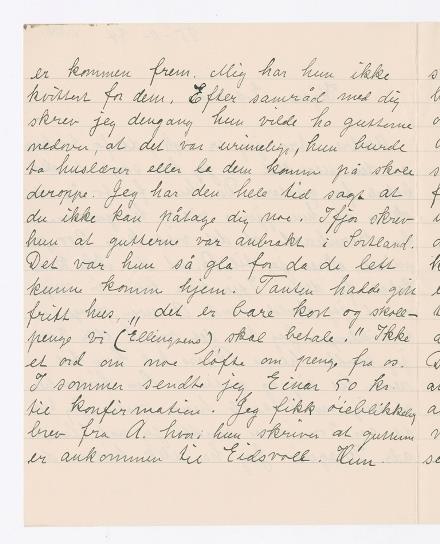 er kommen frem. Mig har hun ikke
kvittert for dem. Efter samråd med dig
skrev jeg dengang hun vilde ha gutterne
nedover, at det var urimelig, hun burde
ta huslærer eller la dem komme på skole
deroppe. Jeg har den hele tid sagt at
du ikke kan påtage dig noe. Ifjor skrev
hun at gutterne var anbrakt i Sortland.
Det var hun så gla for da de lett
kunne komm hjem. Tanten hadde gitt
fritt hus, "det er bare kost og skole-
penge vi (Ellingsens) skal betale." Ikke
et ord om noe løfte om penge fra os.
I sommer sendte jeg Einar 50 kr.
til konfirmation. Jeg fikk øieblikkelig
brev fra A. hvori hun skriver at guttene
er ankommen til Eidsvoll. Hun